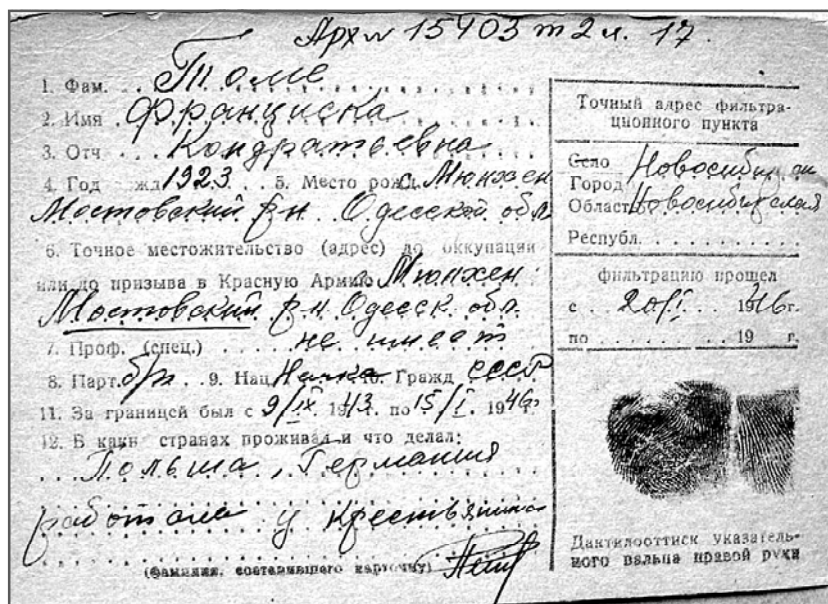 Арх № 15403 т 2 л. 17.
1. Фам. Томе
2. Имя Франциска
3. Отч Кондратьевна
4. Год жд 1923 5. Место рожд. с. Мюнхен
Мостовский р-н. Одесской обл
6. Точное местожительство (адрес) до оккупации
или до призыва в Красную Армию с. Мюнхен
Мостовский р-н Одесск. обл.
7. Проф. (спец.) не имеет
8. Парт. б/п 9. Нац Немка 10. Гражд СССР
11. За границей был с 9/IX. 1943 г. по 15/I. 1946 г.
12. В каки странах проживал и что делал:
Польша, Германия
работала у крестьянина
(фамилия, составившего карточку)
Точный адрес фильтра-
ционного пункта
Село
Город Новосибирск
Область Новосибирская
Республ.
фильтрацию прошел
с 20/I 1946 г.
по 19 г.
Дактилооттиск указатель-
ного пальца правой руки